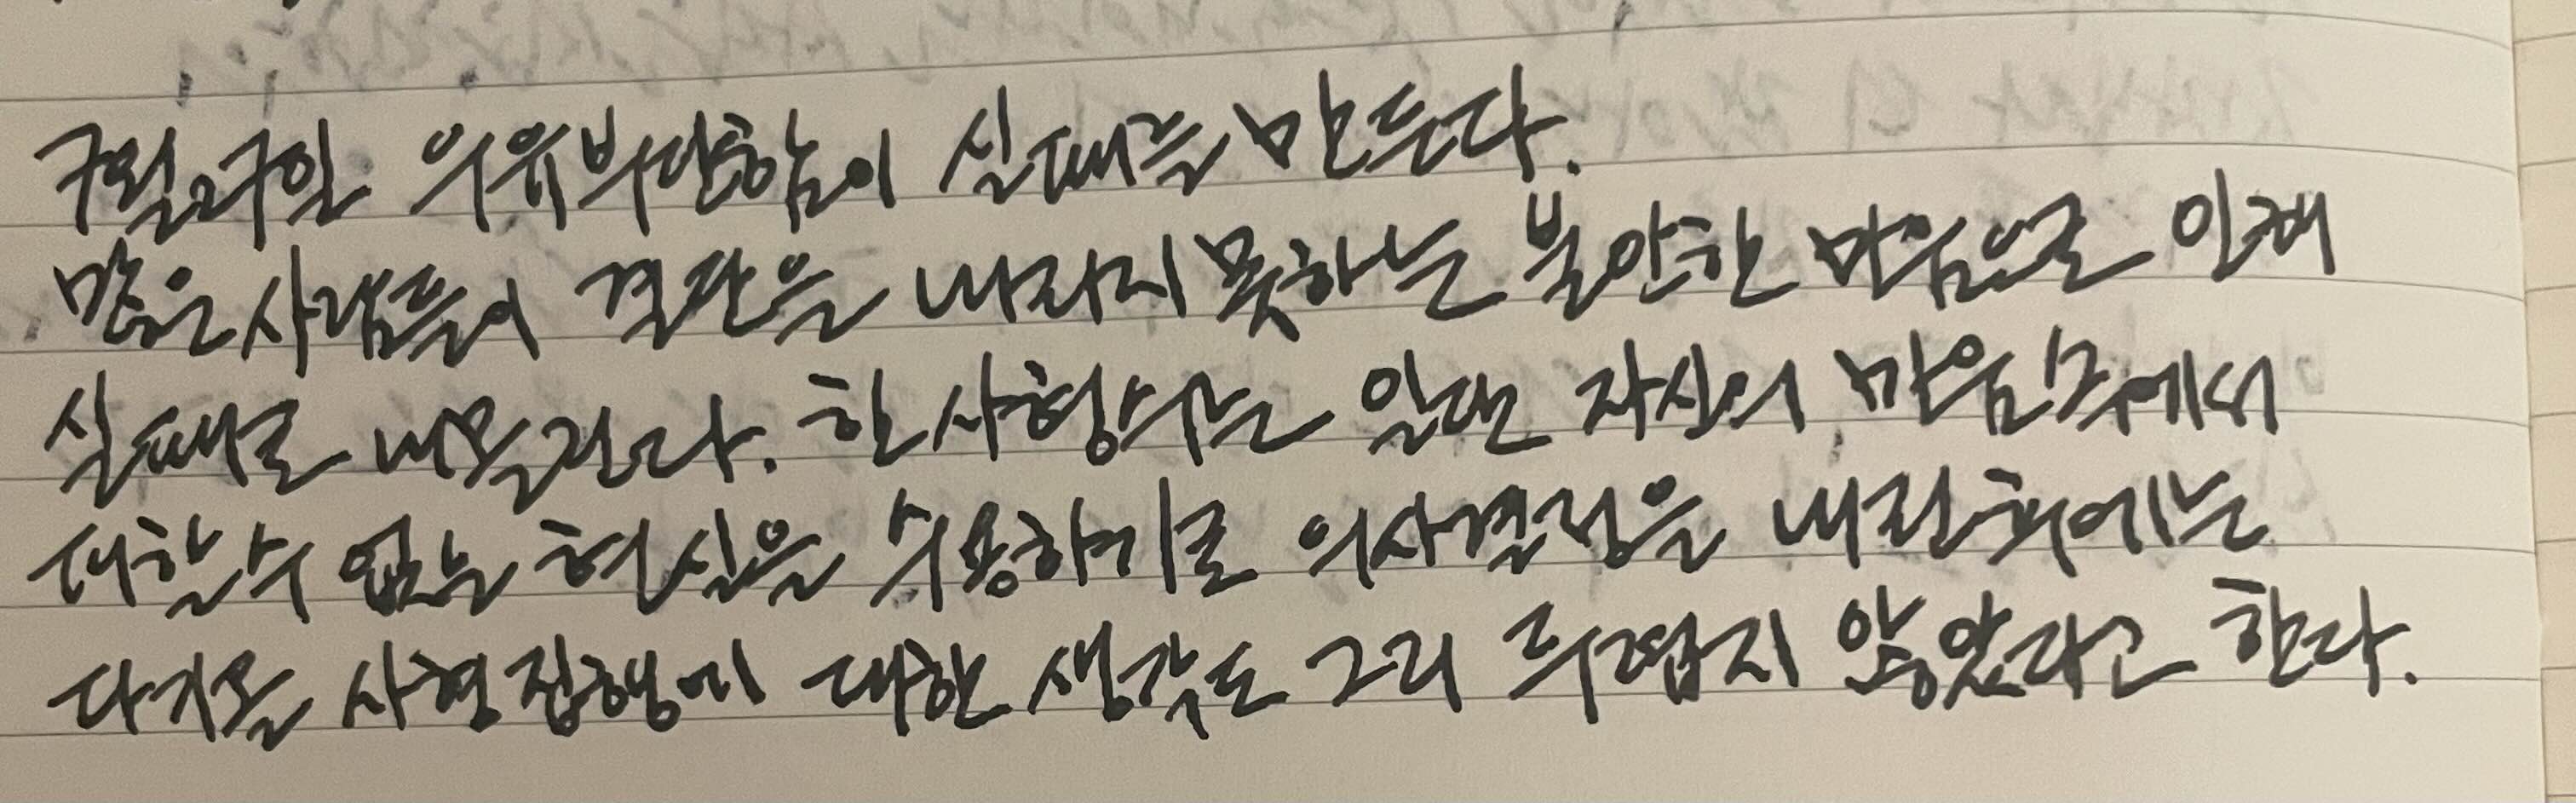 구월27일 우유부단함이 실패를 만든다.
많은 사람들이 결단을 내리지 못하는 불안한 마음으로 인해
실패로 내몰린다. 한 사형수는 일단 자신의 마음속에서
대할수 없는 현실을 수용하기로 의사결정을 내린후에는
다가올 사형집행에 대한 생각도 그리 두렵지 않았다고 한다.